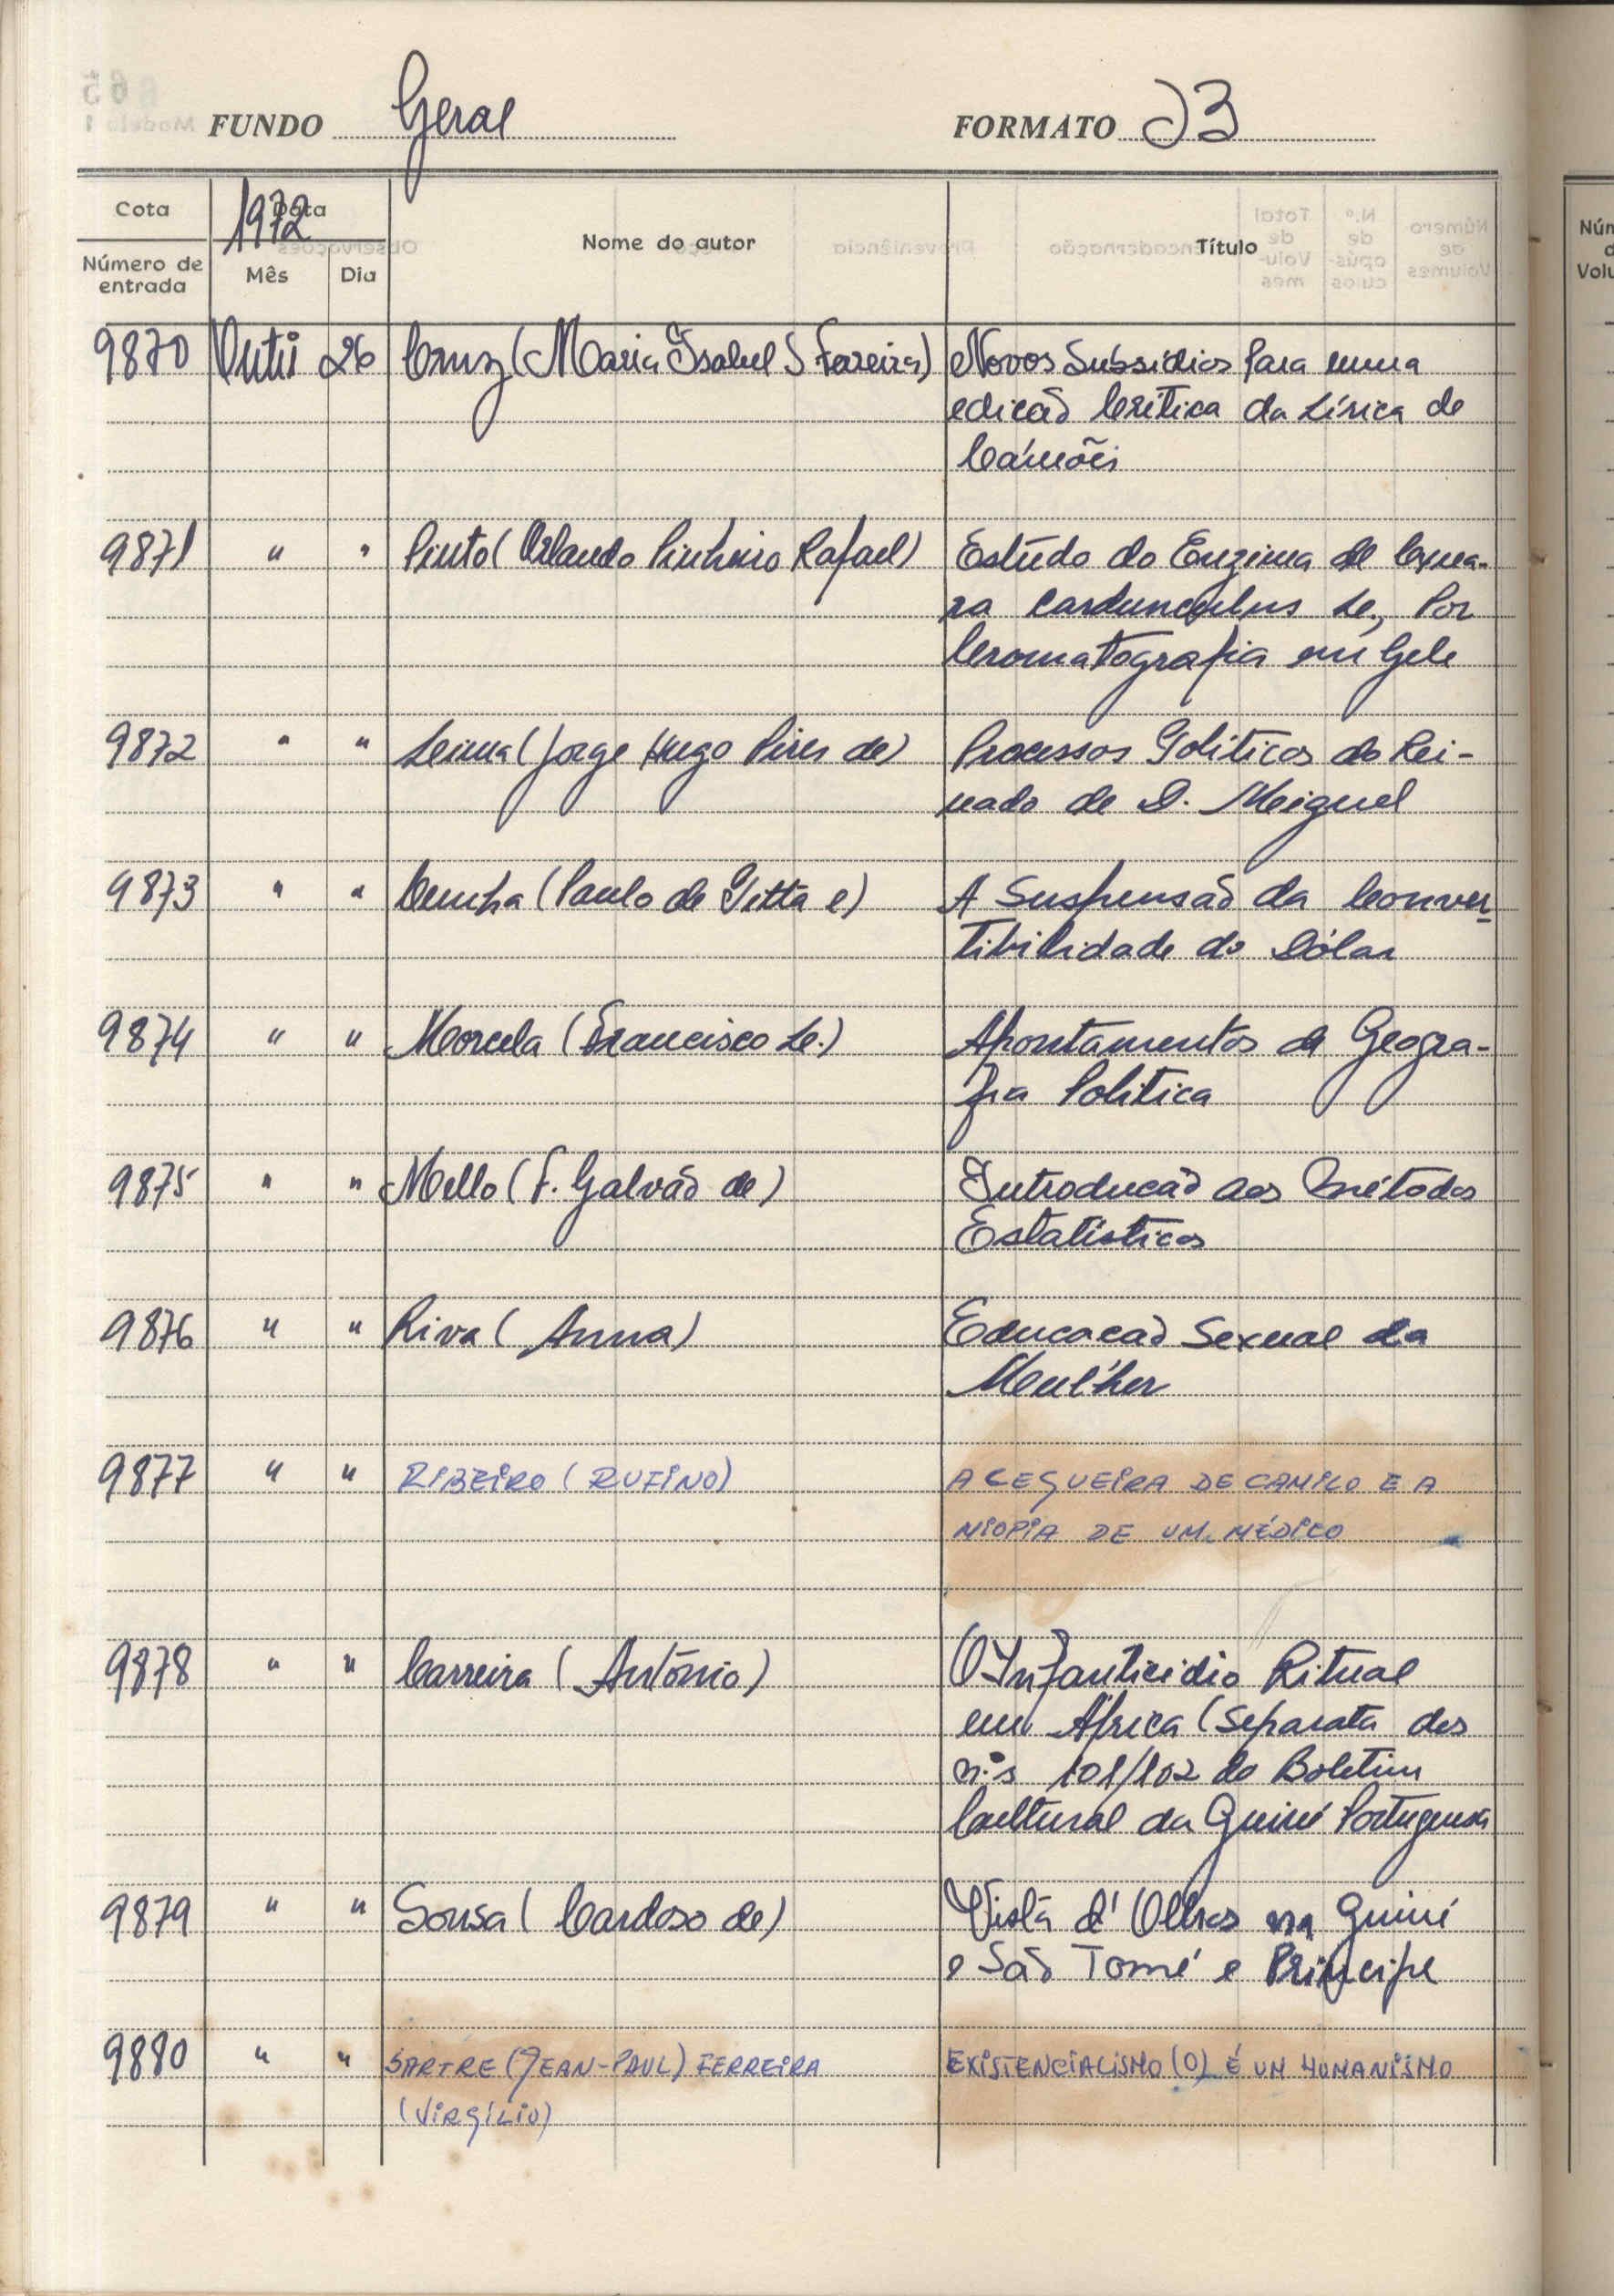 FUNDO Geral FORMATO J3
Cota Data 1972 Nome do autor Título
Número de entrada Mês Dia
9870 Outu 26 Cruz (Maria Isabel S Ferreira) Novos Subsidios Para uma
edicão Crítica da Lírica de
Camões
9871 " " Pinto (Orlando Pinheiro Rafael) Estudo do Enzima de Cyna-
ra Cardunculus L., Por
Cromatografia em Gele
9872 " " Lima (Jorge Hugo Pires de) Processos Políticos do Rei-
nado de D. Miguel
9873 " " Cunha (Paulo de Pitta e) A Suspensão da Conver
tibilidade do Dólar
9874 " " (Francisco L.) Apontamentos de Geogra-
fia Politica
9875 " " Mello (F. Galvão de) Introducão aos Métodos
Estatísticos
9876 " " Riva (Anna) Educacão Sexual da
Mulher
9877 " " RIBEIRO (RUFINO) A CEGUEIRA DE CAMILO E A
MIOPIA DE UM MÉDICO
9878 " " Carreira (António) O Infanticidio Ritual
em África (Separata dos
n.ºs 101/102 do Boletim
Cultural da Guiné Portuguesa
9879 " " Sousa (Cardoso de) Vista d' Olhos na Guiné
e São Tomé e Principe
9880 " " SARTRE (JEAN-PAUL) FERREIRA EXISTENCIALISMO (O) É UM HUMANISMO
(VIRGÍLIO)